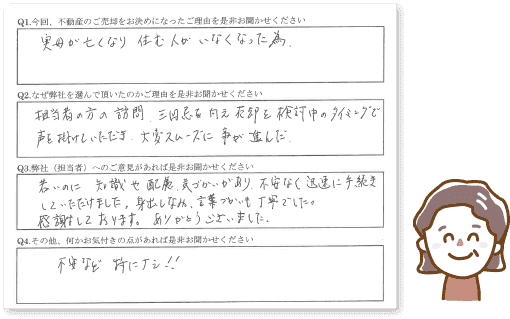 Q1.今回、不動産のご売却をお決めになったご理由を是非お聞かせください
実母が亡くなり 住む人がいなくなった為.
Q2.なぜ弊社を選んで頂いたのかご理由を是非お聞かせください
担当者の方の訪問、三回忌を向え 売却を検討中のタイミングで
声を掛けていただき、大変スムーズに事が進んだ.
Q3.弊社（担当者）へのご意見があれば是非お聞かせください
若いのに 知識や配慮、気づかいがあり、不安なく迅速に手続き
していただけました。身出しなみ、言葉づかいも丁寧でした。
感謝しております。ありがとうございました。
Q4.その他、何かお気付きの点があれば是非お聞かせください
不安など 特にナシ!!